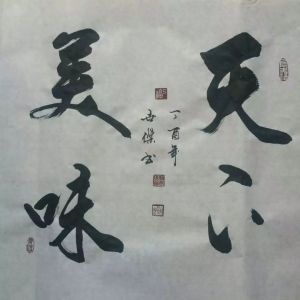 天下
美味
丁酉年